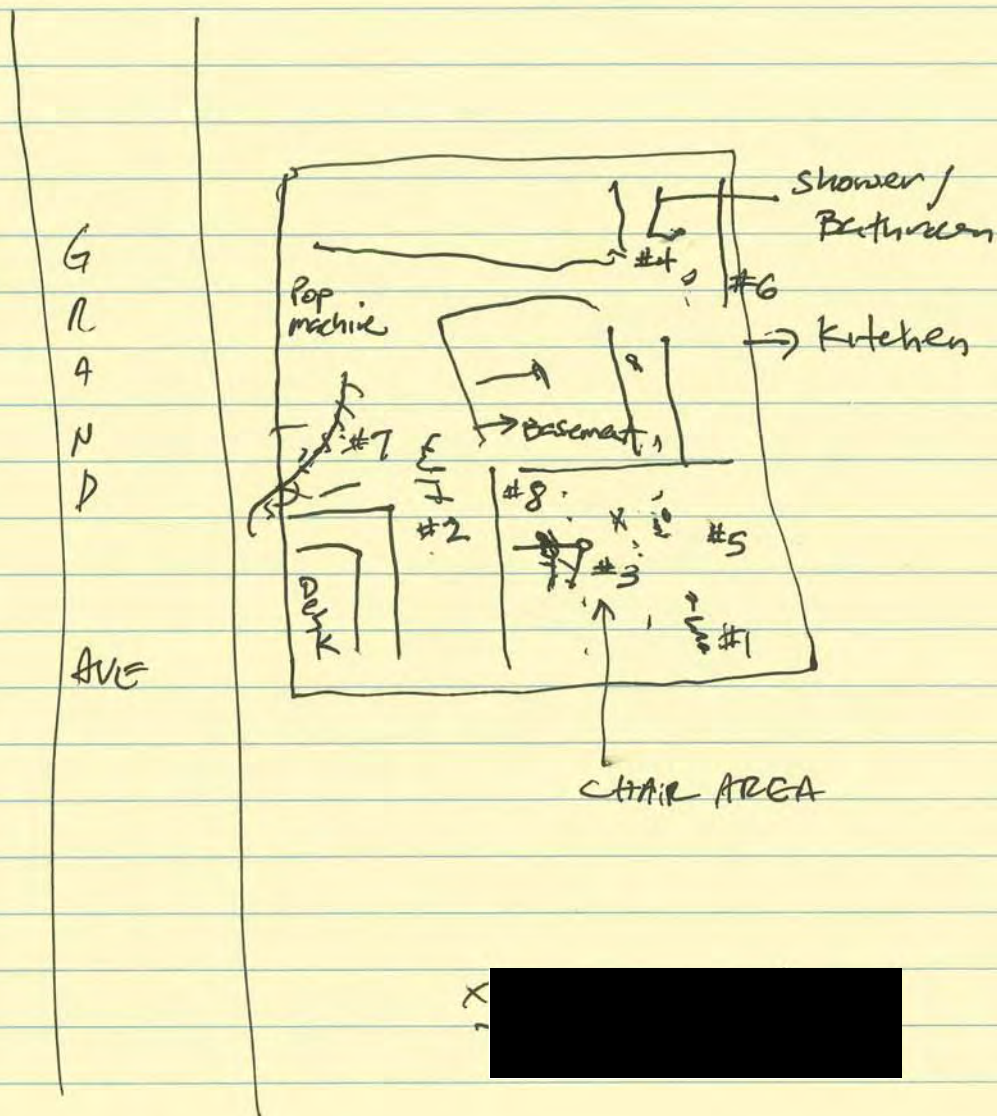 GRAND
AVE
Shower /
Bathroom
#4
#6
Pop
machine
Kitchen
Basement
#7
#2
#8
#5
#3
Desk
#1
CHAIR AREA
X